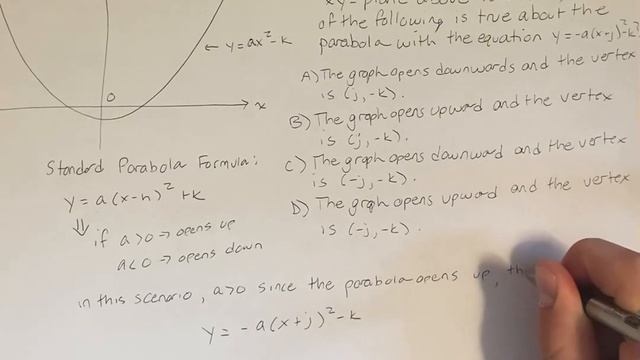 xy-plane above is
of the following is true about the
parabola with the equation y=-a(x+j)²-k?
A) The graph opens downwards and the vertex
is (j,-k).
B) The graph opens upward and the vertex
is (j,-k).
C) The graph opens downward and the vertex
is (-j,-k).
D) The graph opens upward and the vertex
is (-j,-k).
y=ax²-k
0
x
Standard Parabola Formula:
y=a(x-h)²+k
if a>0→opens up
a<0→opens down
in this scenario, a>0 since the parabola opens up, th
y=-a(x+j)²-k